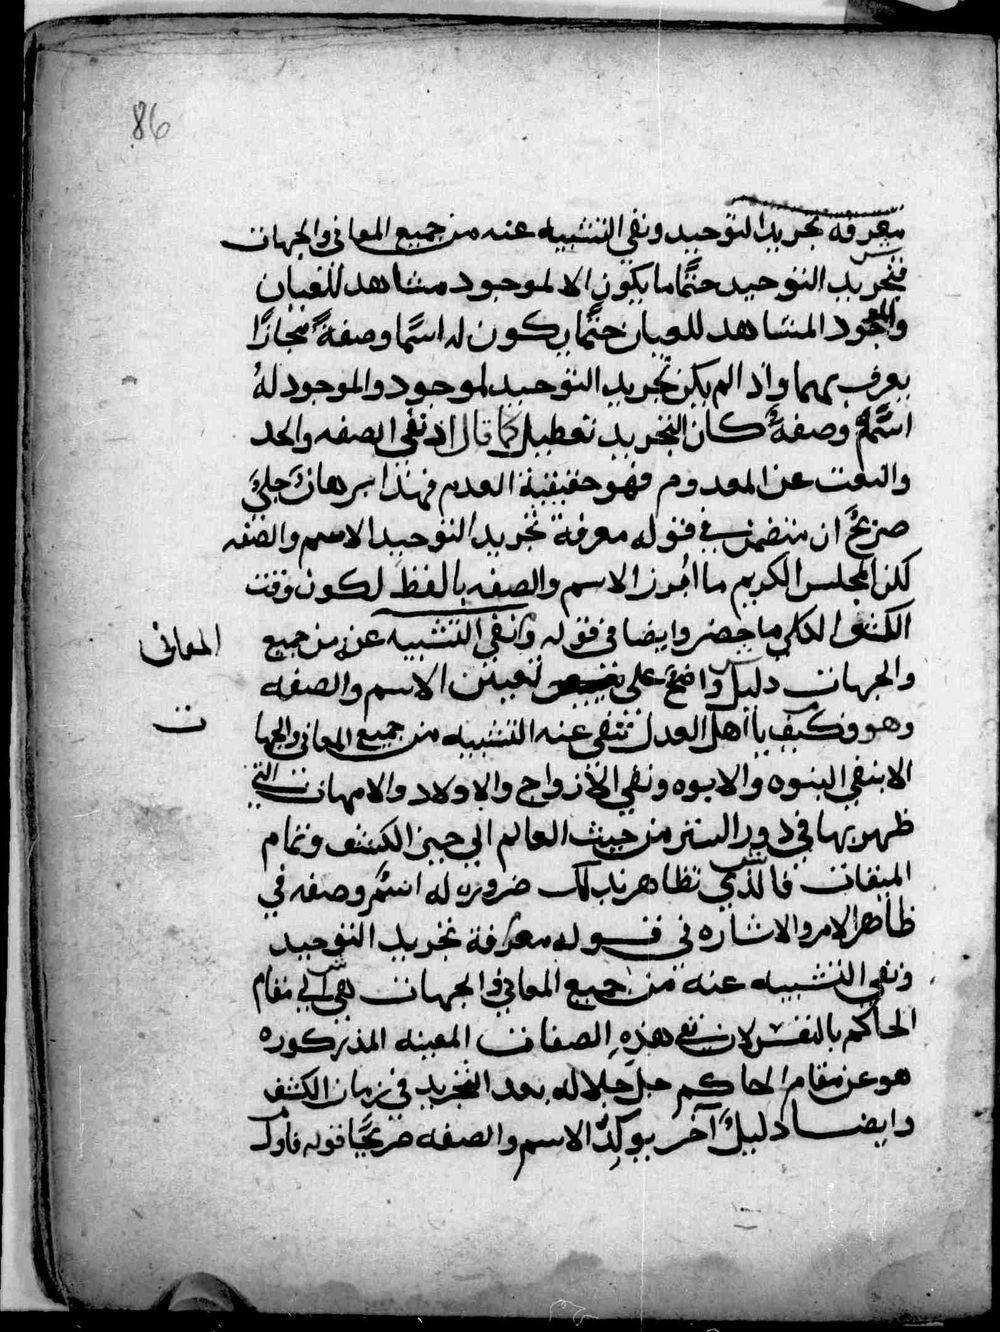 86
معرفة تجريد التوحيد ونفي التشبيه عنه من جميع المعاني والجهات
فتجريد التوحيد حتمًا ما يكون الا لموجود مشاهد للعيان
والموجود المشاهد للعيان حتمًا يكون له اسمًا وصفةً مجازًا
يعرف بهما واذا لم يكن تجريد التوحيد لموجود والموجود لهُ
اسمٌ وصفةٌ كان التجريد تعطيل كما قال اذ نفي الصفه والحد
والنعت عن المعدوم فهو حقيقية العدم فهذا برهانٌ جليٌ
صريحٌ ان متضمن في قوله معرفة تجريد التوحيد الاسم والصفه
لكن المجلس الكريم ما ابرز الاسم والصفه بالفظ لكون وقت
الكشف الكلي ما حضر وايضا في قوله ونفي التشبيه عنه من جميع المعاني
والجهات دليل واضح على تعيين الاسم والصفه
وهو وكيف يا اهل العدل تنفي عنه التشبيه من جميع المعاني والجهات
الا بنفي البنوه والابوه ونفي الازواج والاولاد والامهات التي
ظهر بها في دور الستر من حيث العالم الي حين الكشف وتمام
الميقات فالذي تظاهر بذلك ضروره له اسمٌ وصفه في
ظاهر الامر والاشاره في قوله معرفة تجريد التوحيد
ونفي التشبيه عنه من جميع المعاني والجهات هي الي مقام
الحاكم بالنفس لان نفي هذهِ الصفات المعينه المذكوره
هو عن مقام الحاكم جل جلاله بعد التجريد في زمان الكشف
وايضا دليلٌ آخر يوكدُ الاسم والصفه صريحًا قوله فاول